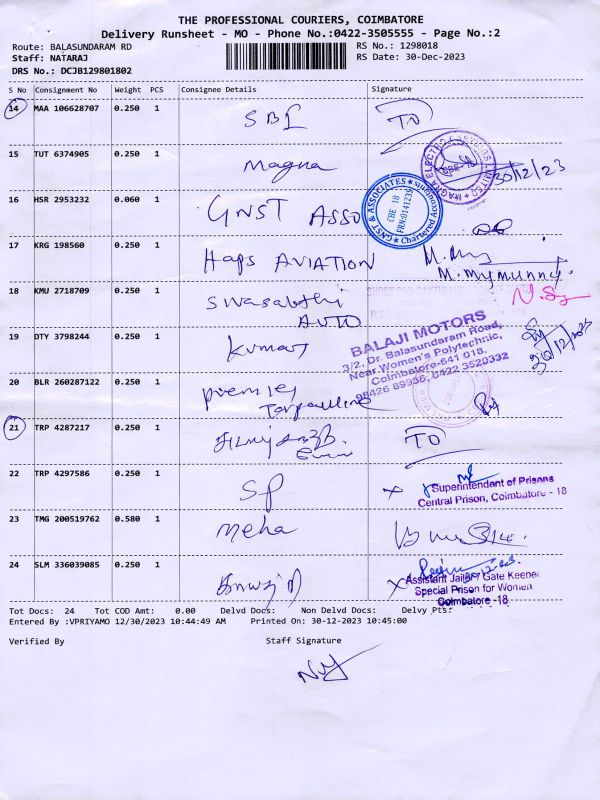 THE PROFESSIONAL COURIERS, COIMBATORE
Delivery Runsheet - MO - Phone No.:0422-3505555 - Page No.:2
Route: BALASUNDARAM RD
RS No.: 1298018
Staff: NATARAJ
RS Date: 30-Dec-2023
DRS No.: DCJB129801802
S No Consignment No Weight PCS Consignee Details Signature
14 MAA 106628707 0.250 1 SBI TO
15 TUT 6374905 0.250 1 Magna 30/12/23
16 HSR 2953232 0.060 1 GNST ASSO
GNST & ASSOCIATES
CBE 18
FRN:014123S
Chartered Accountants
17 KRG 198560 0.250 1 Haps AVIATION
M. Mymunny.
18 KMU 2718709 0.250 1 Sivasakthi AUTO
19 DTY 3798244 0.250 1 Kumar 30/12/2023
BALAJI MOTORS
3/2, Dr. Balasundaram Road,
Near Women's Polytechnic,
Coimbatore-641 018.
98426 89936, 0422 3520332
20 BLR 260287122 0.250 1 premier Tarpauline
21 TRP 4287217 0.250 1 TO
22 TRP 4297586 0.250 1 SP
Superintendent of Prisons
Central Prison, Coimbatore - 18
23 TMG 200519762 0.580 1 Meha
24 SLM 336039085 0.250 1
Assistant Jailor / Gate Keeper
Special Prison for Women
Coimbatore -18
Tot Docs: 24 Tot COD Amt: 0.00 Delvd Docs: Non Delvd Docs: Delvy Pts:
Entered By :VPRIYAMO 12/30/2023 10:44:49 AM Printed On: 30-12-2023 10:45:00
Verified By Staff Signature